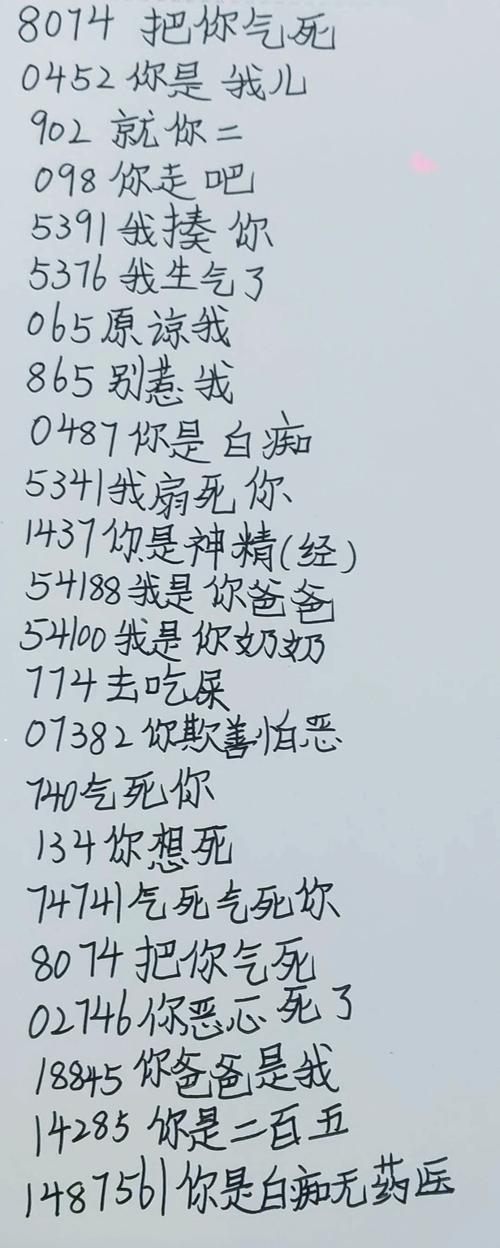 8074 把你气死
0452你是我儿
902 就你二
098你走吧
5391我揍你
5376我生气了
065原谅我
865别惹我
0487你是白痴
5341我扇死你
1437你是神精(经)
54188我是你爸爸
54100我是你奶奶
774去吃屎
07382你欺善怕恶
740气死你
134你想死
74741气死气死你
8074把你气死
02746你恶心死了
18845你爸爸是我
14285你是二百五
1487561你是白痴无药医